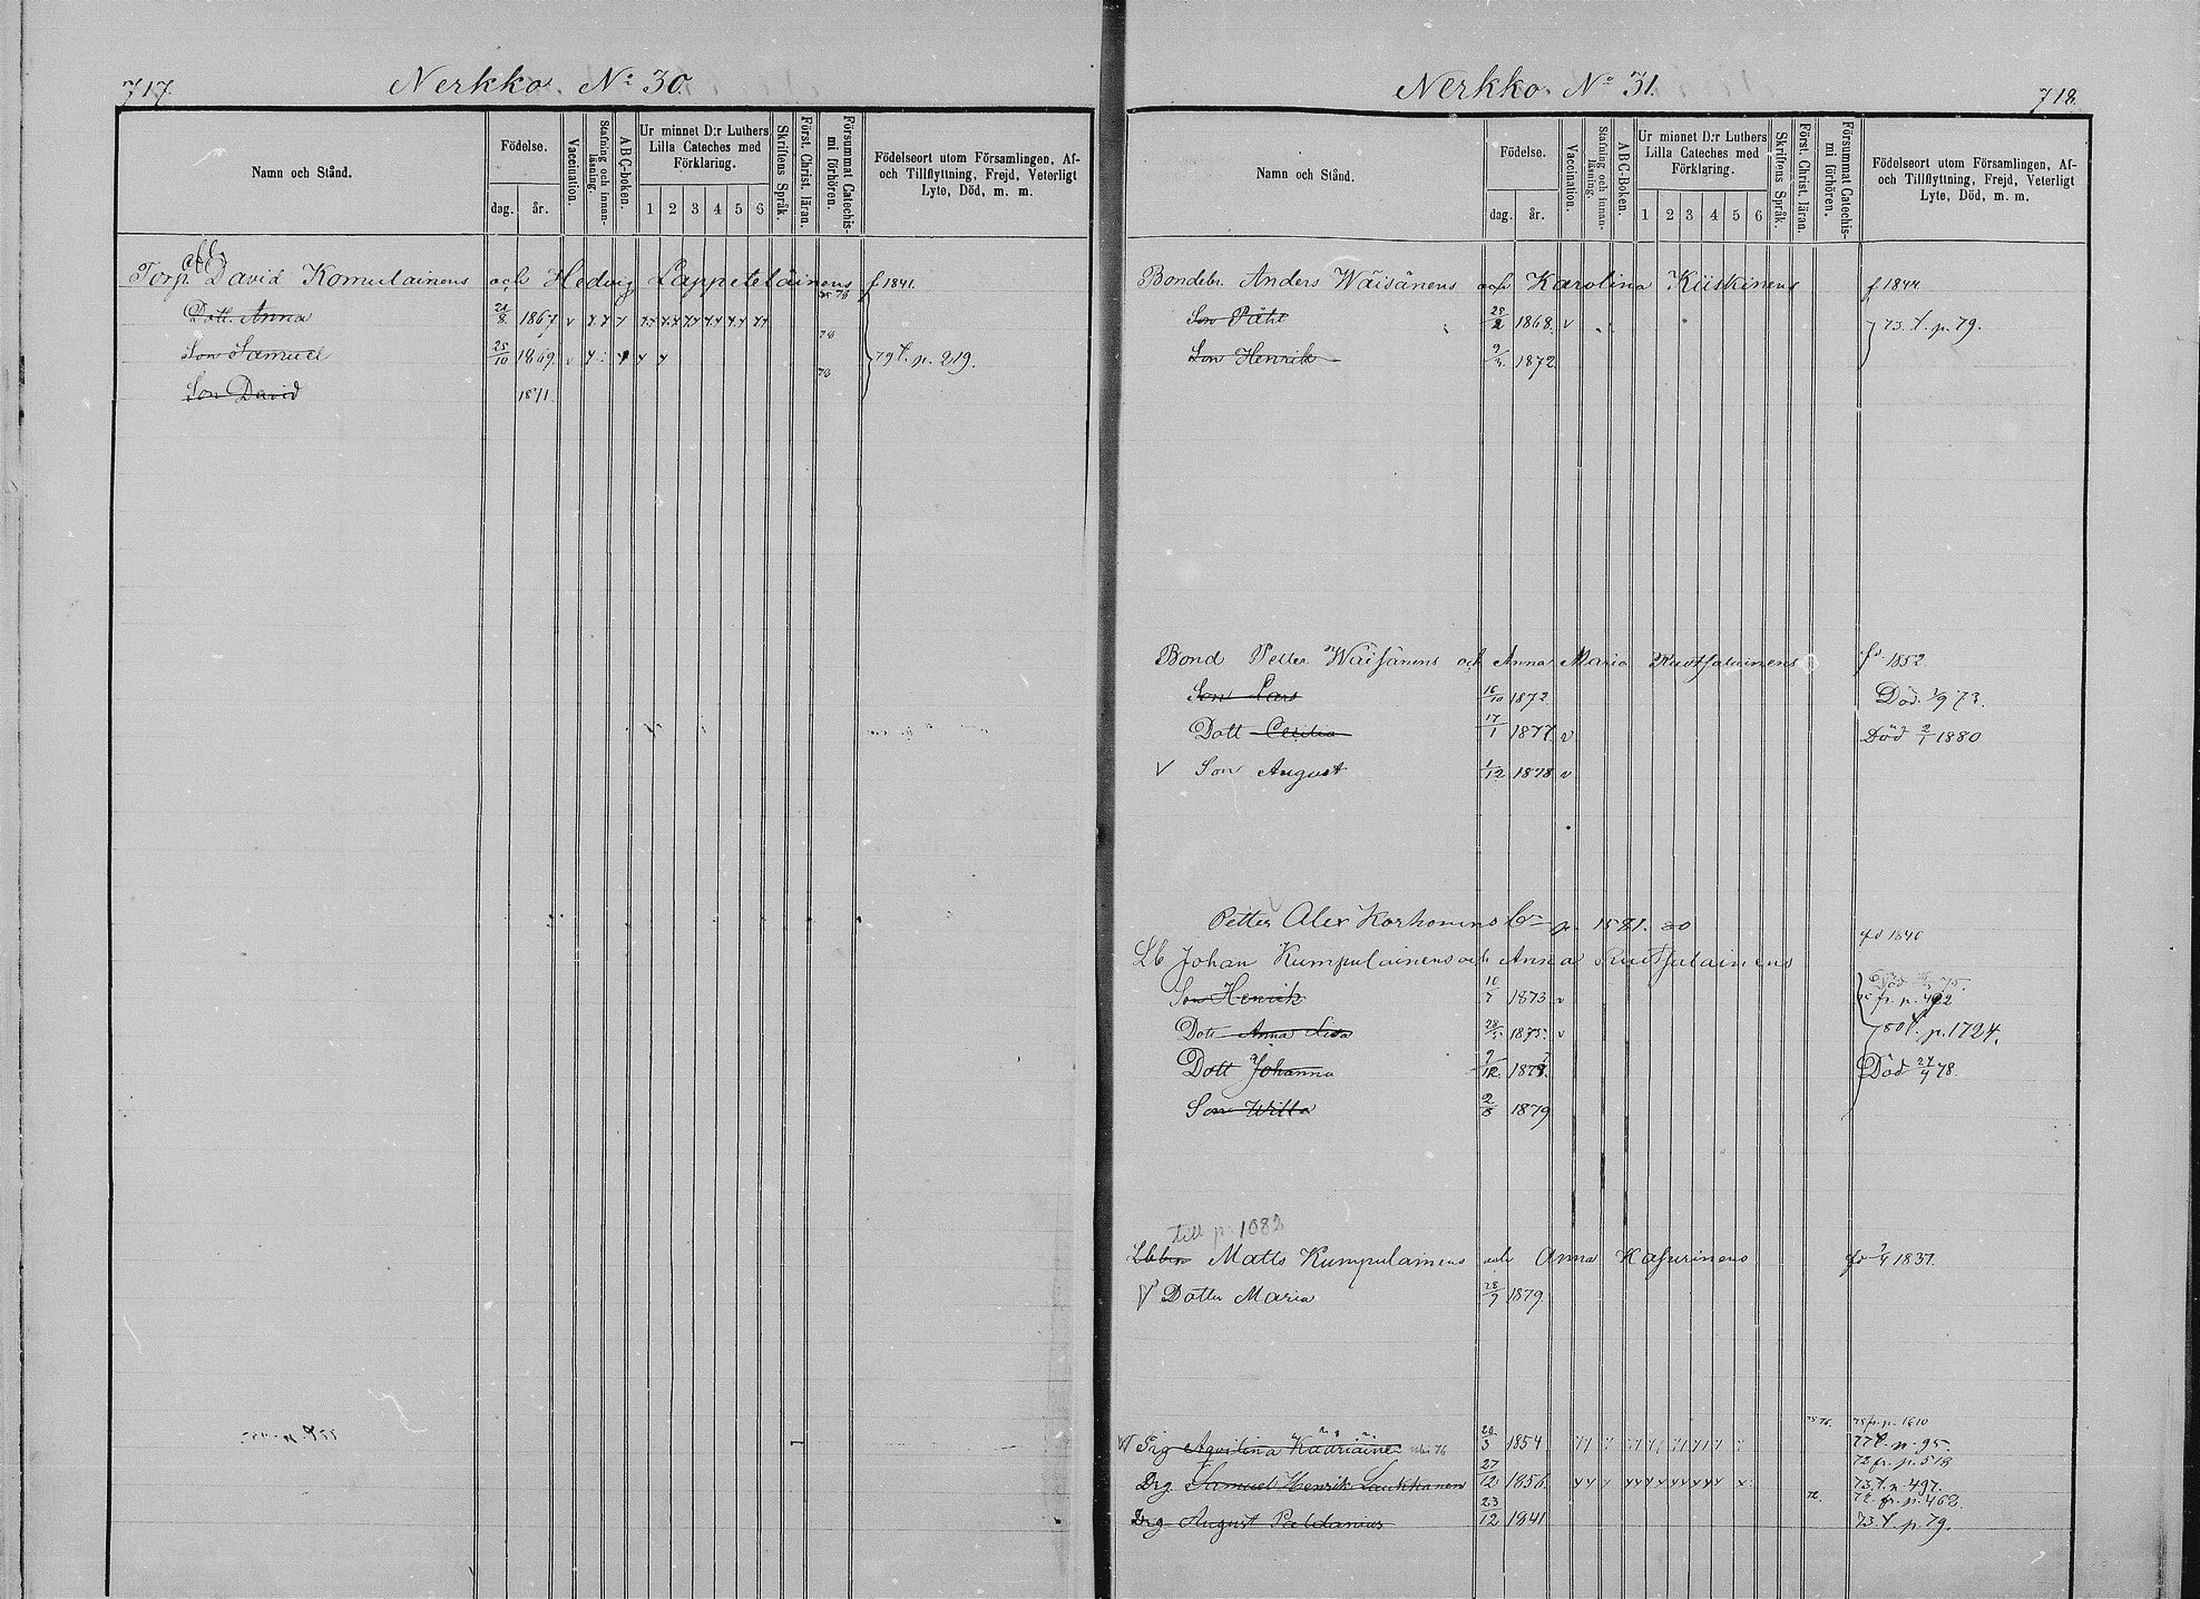 717.
Nerkko. No 30.
Namn och Stånd.
Födelse.
dag.
år.
Vaccination.
Stafning och innan-
läsning.
ABC-boken.
Ur minnet D:r Luthers
Lilla Cateches med
Förklaring.
1 2 3 4 5 6
Skriftens Språk.
Först. Christ. läran.
Försummat Catechis-
mi förhören.
Födelseort utom Församlingen, Af-
och Tillflyttning, Frejd, Veterligt
Lyte, Död, m. m.
Torp. David Komulainens och Hedvig Lappeteläinens f 1841.
Dott. Anna 21/8 1867. v
Son Samuel 25/10 1869. v 79 t. p. 219.
Son David 1871
Nerkko. No 31.
718.
Namn och Stånd.
Födelse.
dag.
år.
Vaccination.
Stafning och innan-
läsning.
ABC-Boken.
Ur minnet D:r Luthers
Lilla Cateches med
Förklaring.
1 2 3 4 5 6
Skriftens Språk.
Först. Christ. läran.
Försummat Catechis-
mi förhören.
Födelseort utom Församlingen, Af-
och Tillflyttning, Frejd, Veterligt
Lyte, Död, m. m.
Bondebr. Anders Wäisänens och Karolina Kiiskinens f 1844
Son Påhl 25/2 1868. v 73. t. p. 79.
Son Henrik 1872.
Bond Petter Wäisänens och Anna Maria Ruotsalainens fd. 1852.
Son Lars 16/10 1872 Död. 1/9 73.
Dott Cecilia 17/1 1877 v Död 2/1 1880
V Son August 1/12 1878 v
Petter Alex Korhonens p. 1581. 80
Lb Johan Kumpulainens och Anna Ruotsalainens fd 1840
Son Henrik 10/7 1873 v
Dott Anna Lisa 1875. v 80 t. p. 1724.
Dott Johanna 9/12. 1877. Död 24/4 78.
Son Wille 2/8 1879
till p. 1082
Lbbn Matts Kumpulainens och Anna Hassinens 1837.
V Dotter Maria 28/9 1879.
75 fr. p. 1610
Pig Aqvilina Kääriäinen 20/3 1854 77 t. p. 95.
72 fr. p. 518
Drg. Samuel Henrik Laukkanen 27/12 1856. 73. t. p. 497.
72. 72. fr. p. 468.
Drg. August Paldanius 23/12 1841 73. t. p. 79.